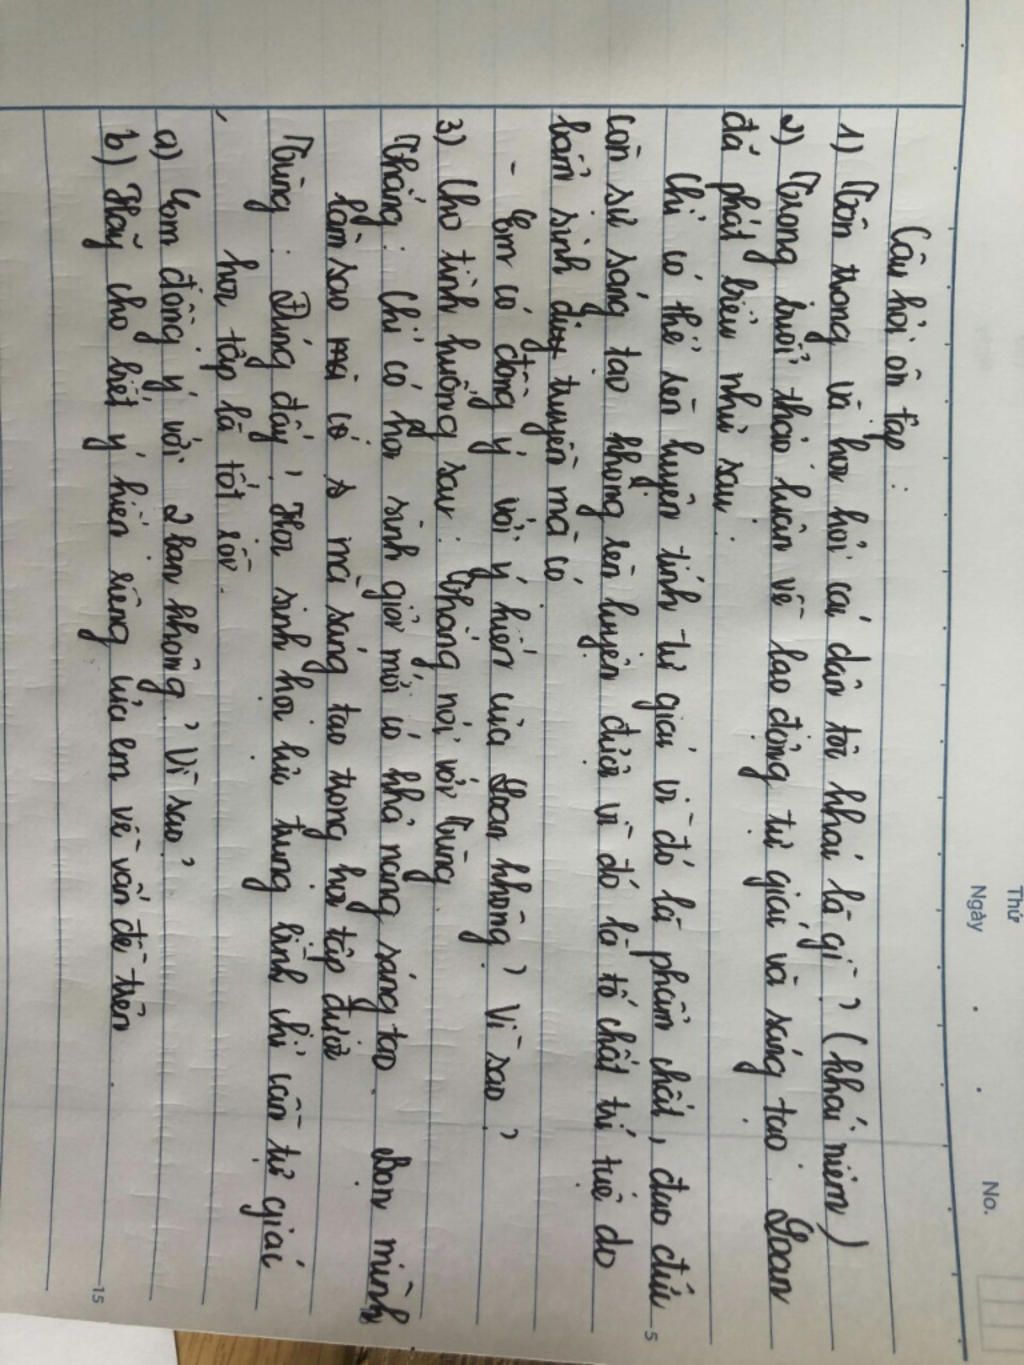 Thứ
Ngày
No.
Câu hỏi ôn tập:
1) Tôn trọng và học hỏi các dân tộc khác là gì? (khái niệm)
2) Trong buổi thảo luận về lao động tự giác và sáng tạo. Loan
đã phát biểu như sau:
Chỉ có thể rèn luyện tính tự giác vì đó là phẩm chất, đạo đức
còn sự sáng tạo không rèn luyện được vì đó là tố chất trí tuệ do
bẩm sinh di truyền mà có
- Em có đồng ý với ý kiến của Loan không? Vì sao?
3) Cho tình huống sau: Thắng nói với Tùng.
Thắng: Chỉ có học sinh giỏi mới có khả năng sáng tạo. Bọn mình
làm sao mà có s mà sáng tạo trong học tập được
Tùng: Đúng đấy, Học sinh học lực trung bình chỉ cần tự giác
học tập là tốt rồi.
a) Em đồng ý với 2 bạn không? Vì sao?
b) Hãy cho biết ý kiến riêng của em về vấn đề trên.
5
15